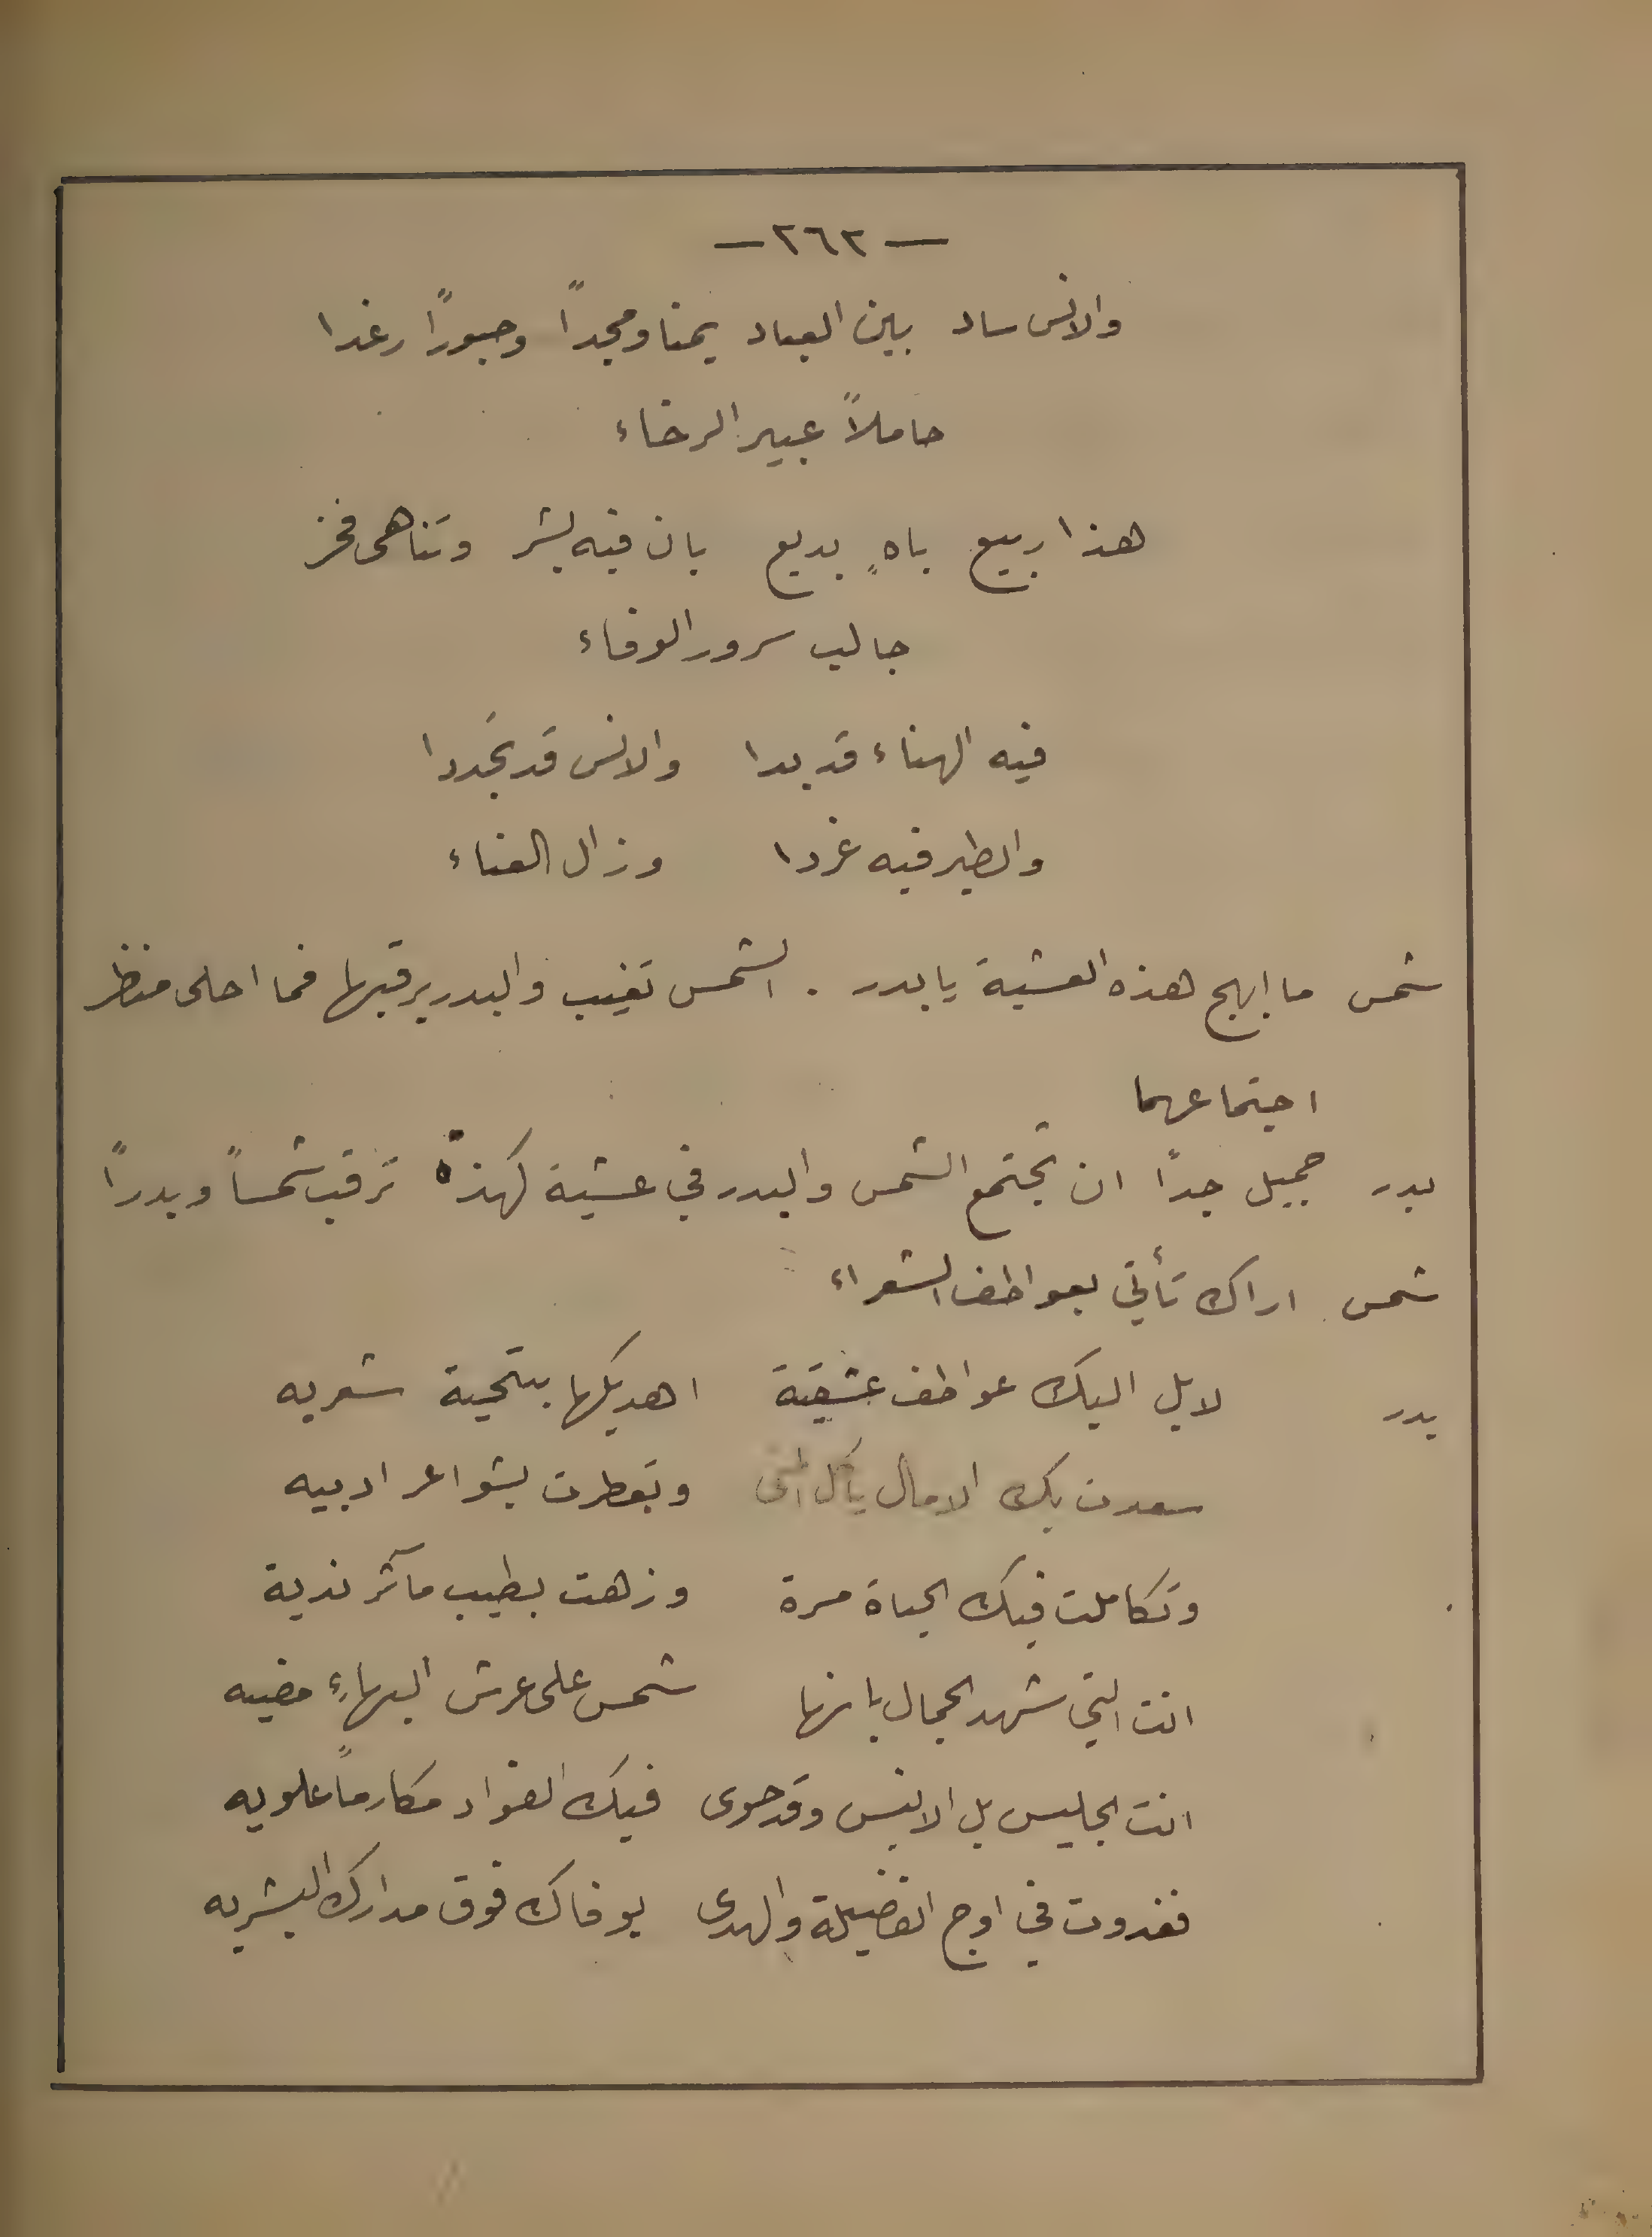 — ٢٦٢ —
والانس ساد بين العباد يمنا ومجداً وحبوراً رغدا
حاملاً عبير الرخاء
هذا ربيع باهٍ بديع بان فيه بشر وتناهى فخر
جالب سرور الوفاء
فيه الهناء قد بدا والانس قد تجَددا
والطير فيه غردا وزال العناء
شمس ما ابهج هذه العشية يا بدر . الشمس تغيب والبدر يرقبها فما احلى منظر
اجتماعهما
بدر جميل جداً ان تجتمع الشمس والبدر في عشية كهذه ترقب شمساً وبدراً
شمس اراك تأتي بعواطف الشعراء
بدر لا بل اليك عواطف عشقية اهديكها بتحية شعريه
سعدت بك الامال يا كل المنى وتعطرت بشواعر ادبيه
وتكاملت فيك الحياة مسرة وزهت بطيب مآثر ندية
انت التي شهد الجمال بانها شمس على عرش البهاءِ مضيه
انت الجليس بل الانيس وقد حوى فيك الفؤاد مكارماً علويه
فغدوت في اوج الفضيلة والهدى بوفاك فوق مدارك البشريه